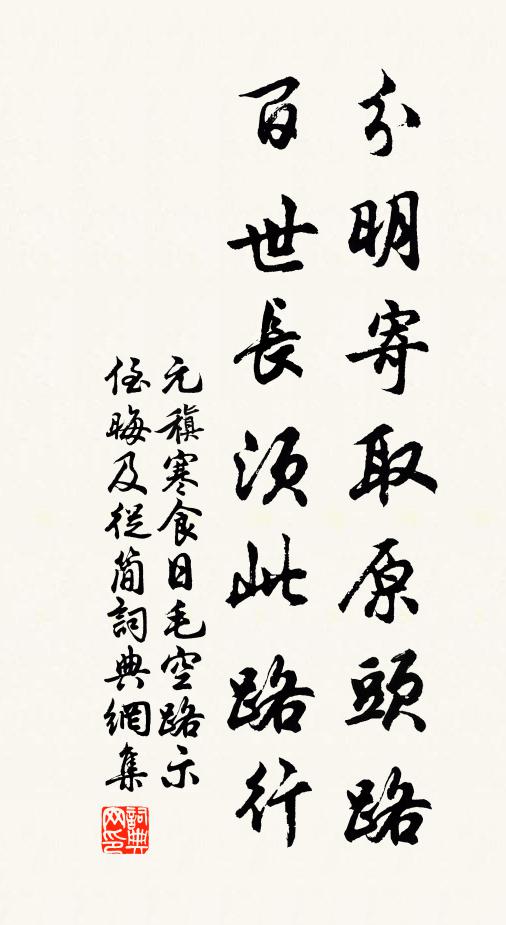 分明寄取原頭路
百世長須此路行
元稹寒食日毛空路示
侄晦及從簡詞典網集
詞典網印